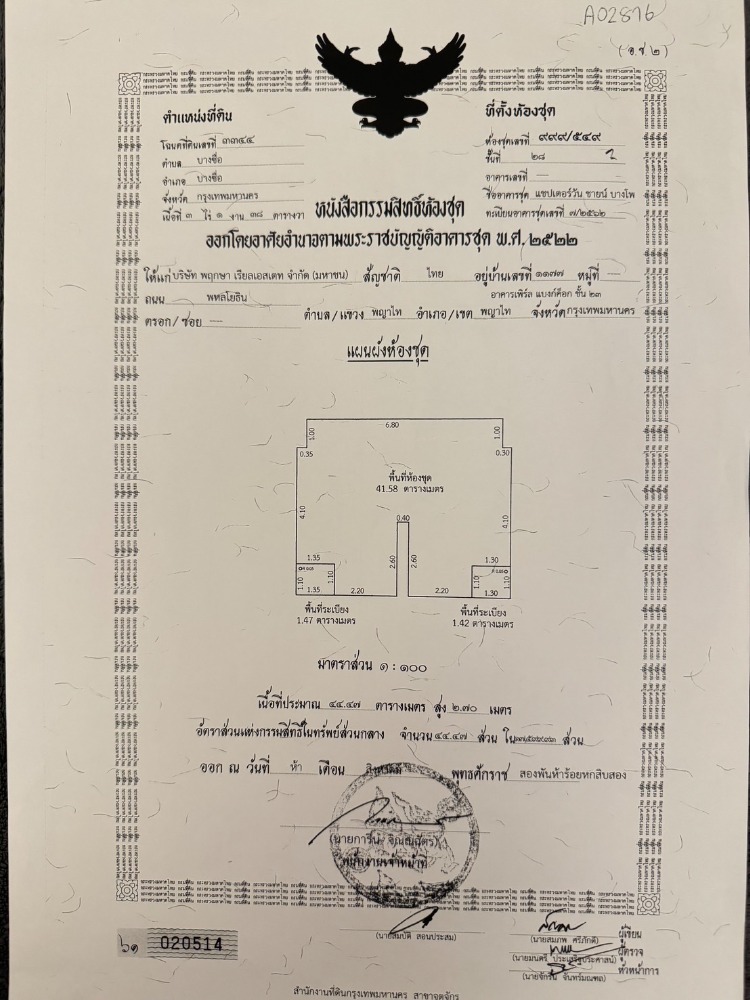 A02876
(อ.ช ๒)
ตำแหน่งที่ดิน
ที่ตั้งห้องชุด
โฉนดที่ดินเลขที่ ๓๓๔๔
ห้องชุดเลขที่ ๙๙๙/๕๔๙
ตำบล บางซื่อ
ชั้นที่ ๒๘
อำเภอ บางซื่อ
อาคารเลขที่ —
จังหวัด กรุงเทพมหานคร
ชื่ออาคารชุด แชปเตอร์วัน ชายน์ บางโพ
เนื้อที่ ๓ ไร่ ๑ งาน ๓๘ ตารางวา
ทะเบียนอาคารชุดเลขที่ ๗/๒๕๖๒
หนังสือกรรมสิทธิ์ห้องชุด
ออกโดยอาศัยอำนาจตามพระราชบัญญัติอาคารชุด พ.ศ. ๒๕๒๒
ให้แก่ บริษัท พฤกษา เรียลเอสเตท จำกัด (มหาชน) สัญชาติ ไทย อยู่บ้านเลขที่ ๑๑๗๗ หมู่ที่ —
ถนน พหลโยธิน
อาคารเพิร์ล แบงก์ค็อก ชั้น ๒๓
ตรอก/ซอย — ตำบล/แขวง พญาไท อำเภอ/เขต พญาไท จังหวัด กรุงเทพมหานคร
แผนผังห้องชุด
6.80
1.00
1.00
0.35
0.30
พื้นที่ห้องชุด
41.58 ตารางเมตร
4.10
4.10
0.40
2.60
2.60
1.35
1.30
1.10
1.10
1.10
1.10
1.35
2.20
2.20
1.30
พื้นที่ระเบียง
1.47 ตารางเมตร
พื้นที่ระเบียง
1.42 ตารางเมตร
มาตราส่วน ๑ : ๑๐๐
เนื้อที่ประมาณ ๔๔.๔๗ ตารางเมตร สูง ๒.๗๐ เมตร
อัตราส่วนแห่งกรรมสิทธิ์ในทรัพย์ส่วนกลาง จำนวน ๔๔.๔๗ ส่วน ใน ส่วน
ออก ณ วันที่ ห้า เดือน สิงหาคม พุทธศักราช สองพันห้าร้อยหกสิบสอง
พนักงานเจ้าหน้าที่
(นายสมบัติ สอนประสม)
ผู้เขียน
(นายสมภพ ศรีภักดี)
ผู้ตรวจ
(นายมนตรี ประเสริฐประศาสน์)
หัวหน้าการ
(นายจักริน จันทร์มณฑล)
๖๑ 020514
สำนักงานที่ดินกรุงเทพมหานคร สาขาจตุจักร